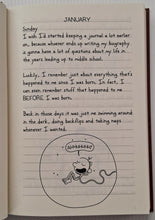 JANUARY
Sunday
I wish I'd started keeping a journal a lot earlier
on, because whoever ends up writing my biography
is gonna have a lot of questions about my life in
the years leading up to middle school.
Luckily, I remember just about everything that's
happened to me since I was born. In fact, I can
even remember stuff that happened to me
BEFORE I was born.
Back in those days it was just me swimming around
in the dark, doing backflips and taking naps
whenever I wanted.